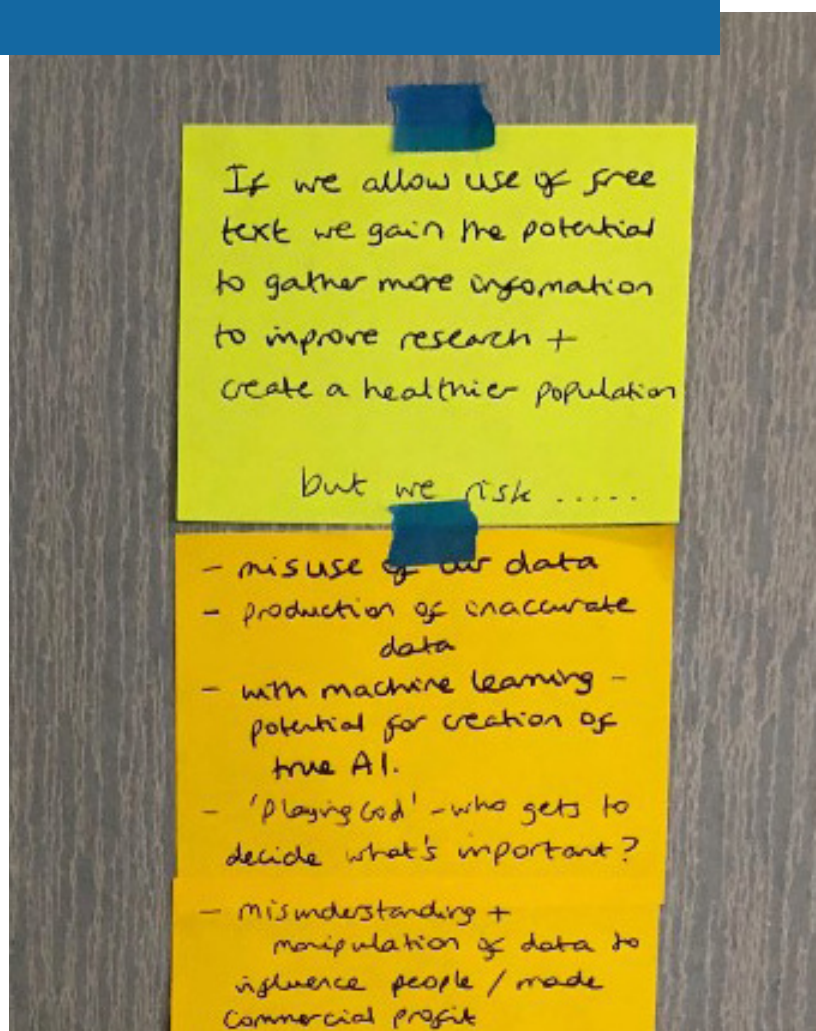 If we allow use of free
text we gain the potential
to gather more infomation
to improve research +
create a healthier population
but we risk .....
- misuse of our data
- production of inaccurate
data
- with machine learning -
potential for creation of
true AI.
- 'Playing God' - who gets to
decide what's important?
- misunderstanding +
manipulation of data to
influence people / made
commercial profit